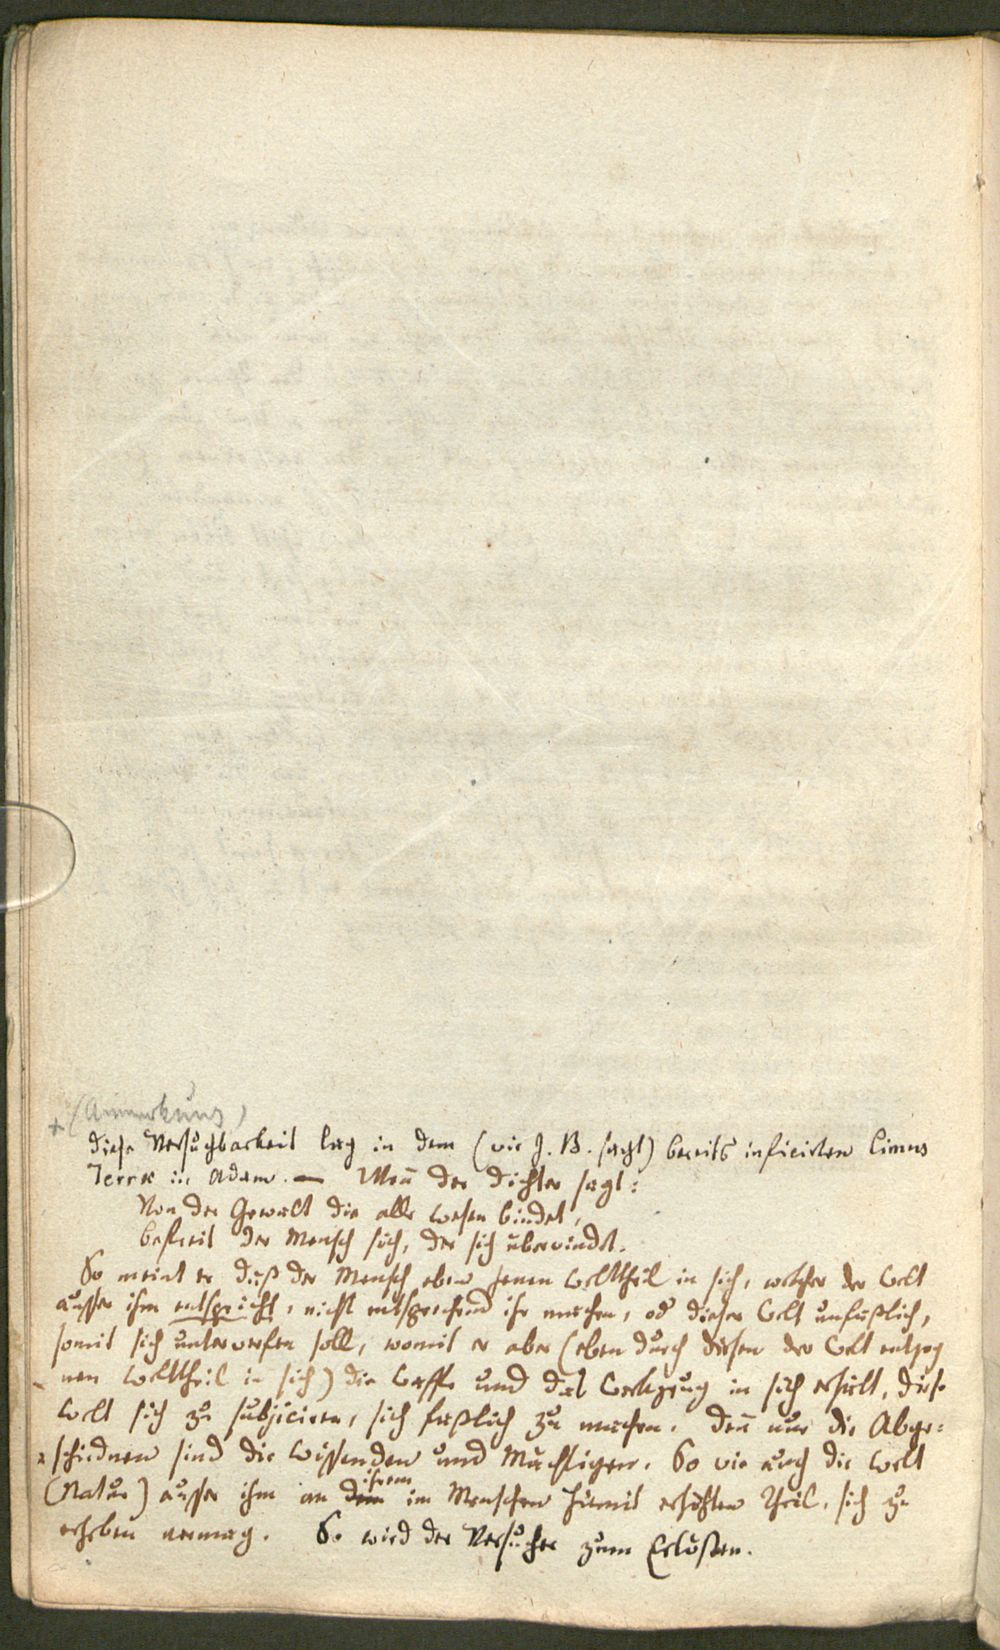 + (Anmerkung)
diese Versuchbarkeit lag in dem (wie J. B. sagt) bereits inficirten limus
Terrae in Adam. — Wenn der Dichter sagt:
Von der Gewalt die alle Wesen bindet,
befreit der Mensch sich, der sich überwindet.
So meint er daß der Mensch eben jenen Welttheil in sich, welcher der Welt
ausser ihm entspricht, nicht entsprechend ihr machen, od dieser Welt unfaßlich,
somit sich unterwerfen soll, womit er aber (eben durch diesen der Welt entzog
nen Welttheil in sich) die Waffe und das Werkzeug in sich erhält, diese
Welt sich zu subjiciren, sich faßlich zu machen. Denn nur die Abge=
schiednen sind die Wissenden und Mächtigen. So wie auch die Welt
(Natur) ausser ihm an ihrem im Menschen hiemit erhöhten Theil, sich zu
erheben vermag. So wird der Versucher zum Erlöser.